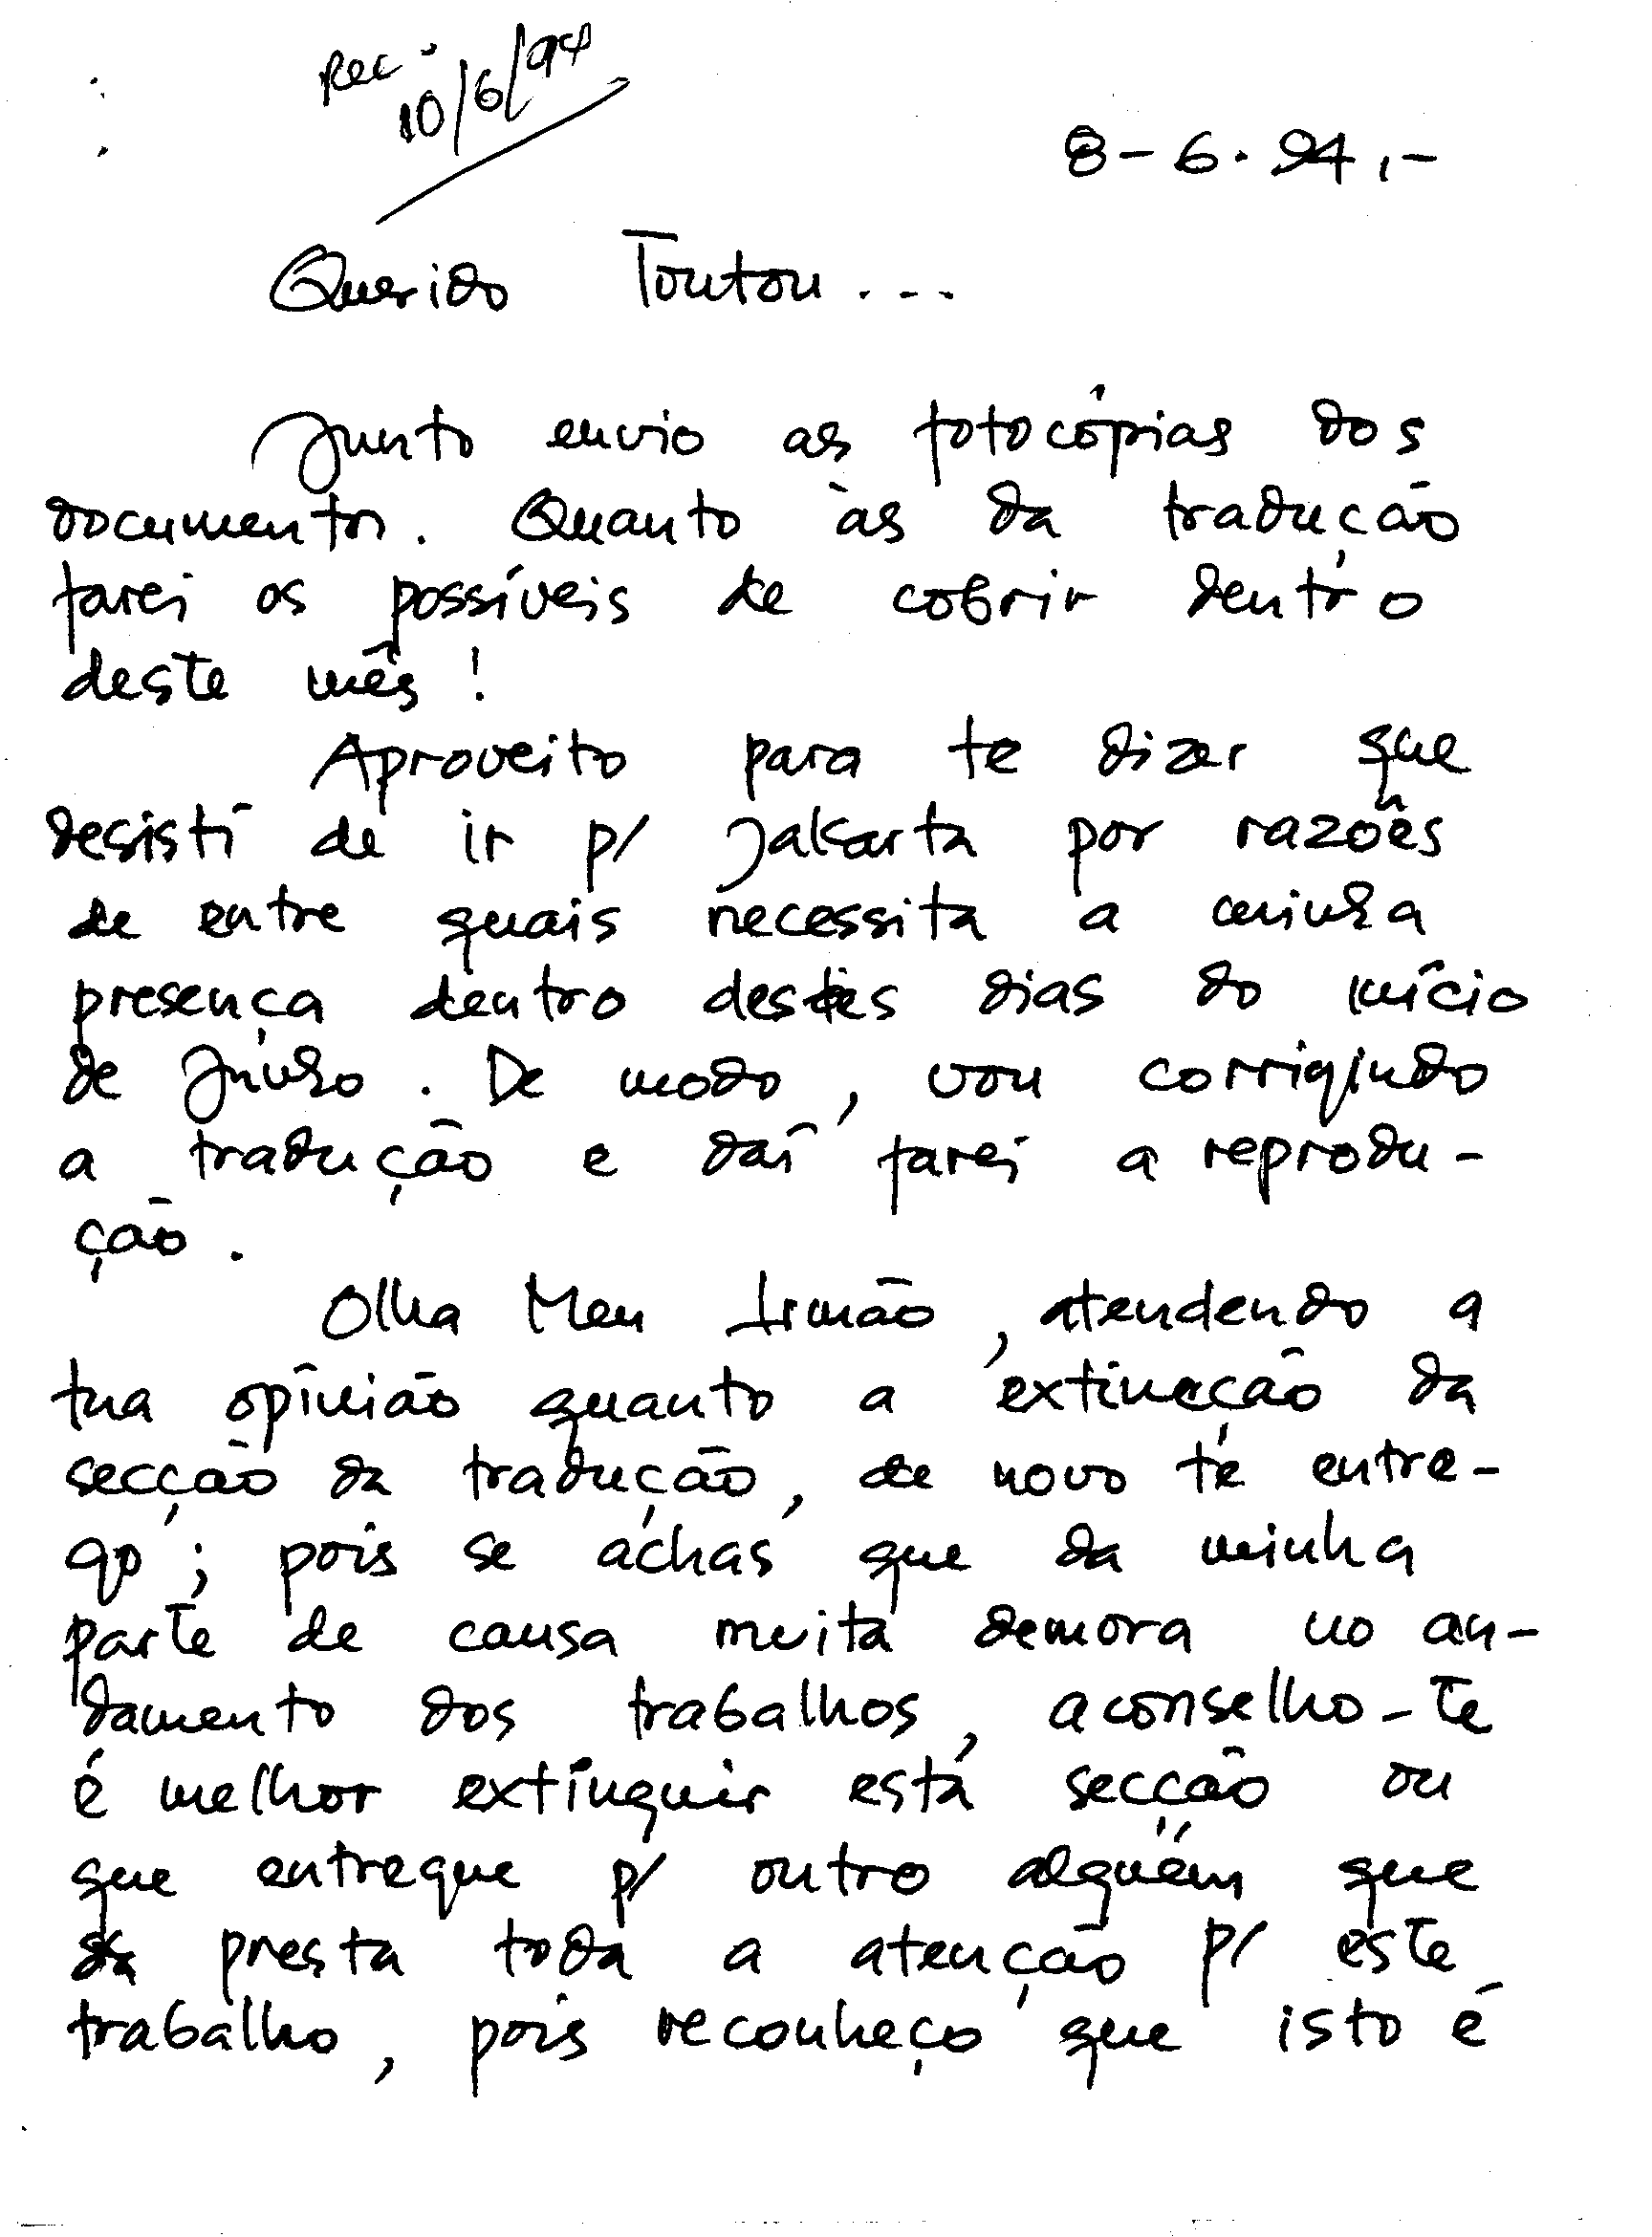 Rec.
10/6/94
8-6.94.-
Querido Toutou....
Junto envio as fotocópias dos
documentos. Quanto às da tradução
farei os possíveis de cobrir dentro
deste mês!
Aproveito para te dizer que
desistí de ir p/ Jakarta por razões
de entre quais necessita a minha
presença dentro destes dias do início
de Junho. De modo, vou corrigindo
a tradução e daí farei a reprodu-
ção.
Olha Meu Irmão, atendendo a
tua opinião quanto a extincção da
secção da tradução, de novo te entre-
go; pois se achas que da minha
parte de causa muita demora no an-
damento dos trabalhos, aconselho-te
é melhor extinguir esta secção ou
que entregue p/ outro alguém que
presta toda a atenção p/ este
trabalho, pois reconheço que isto é